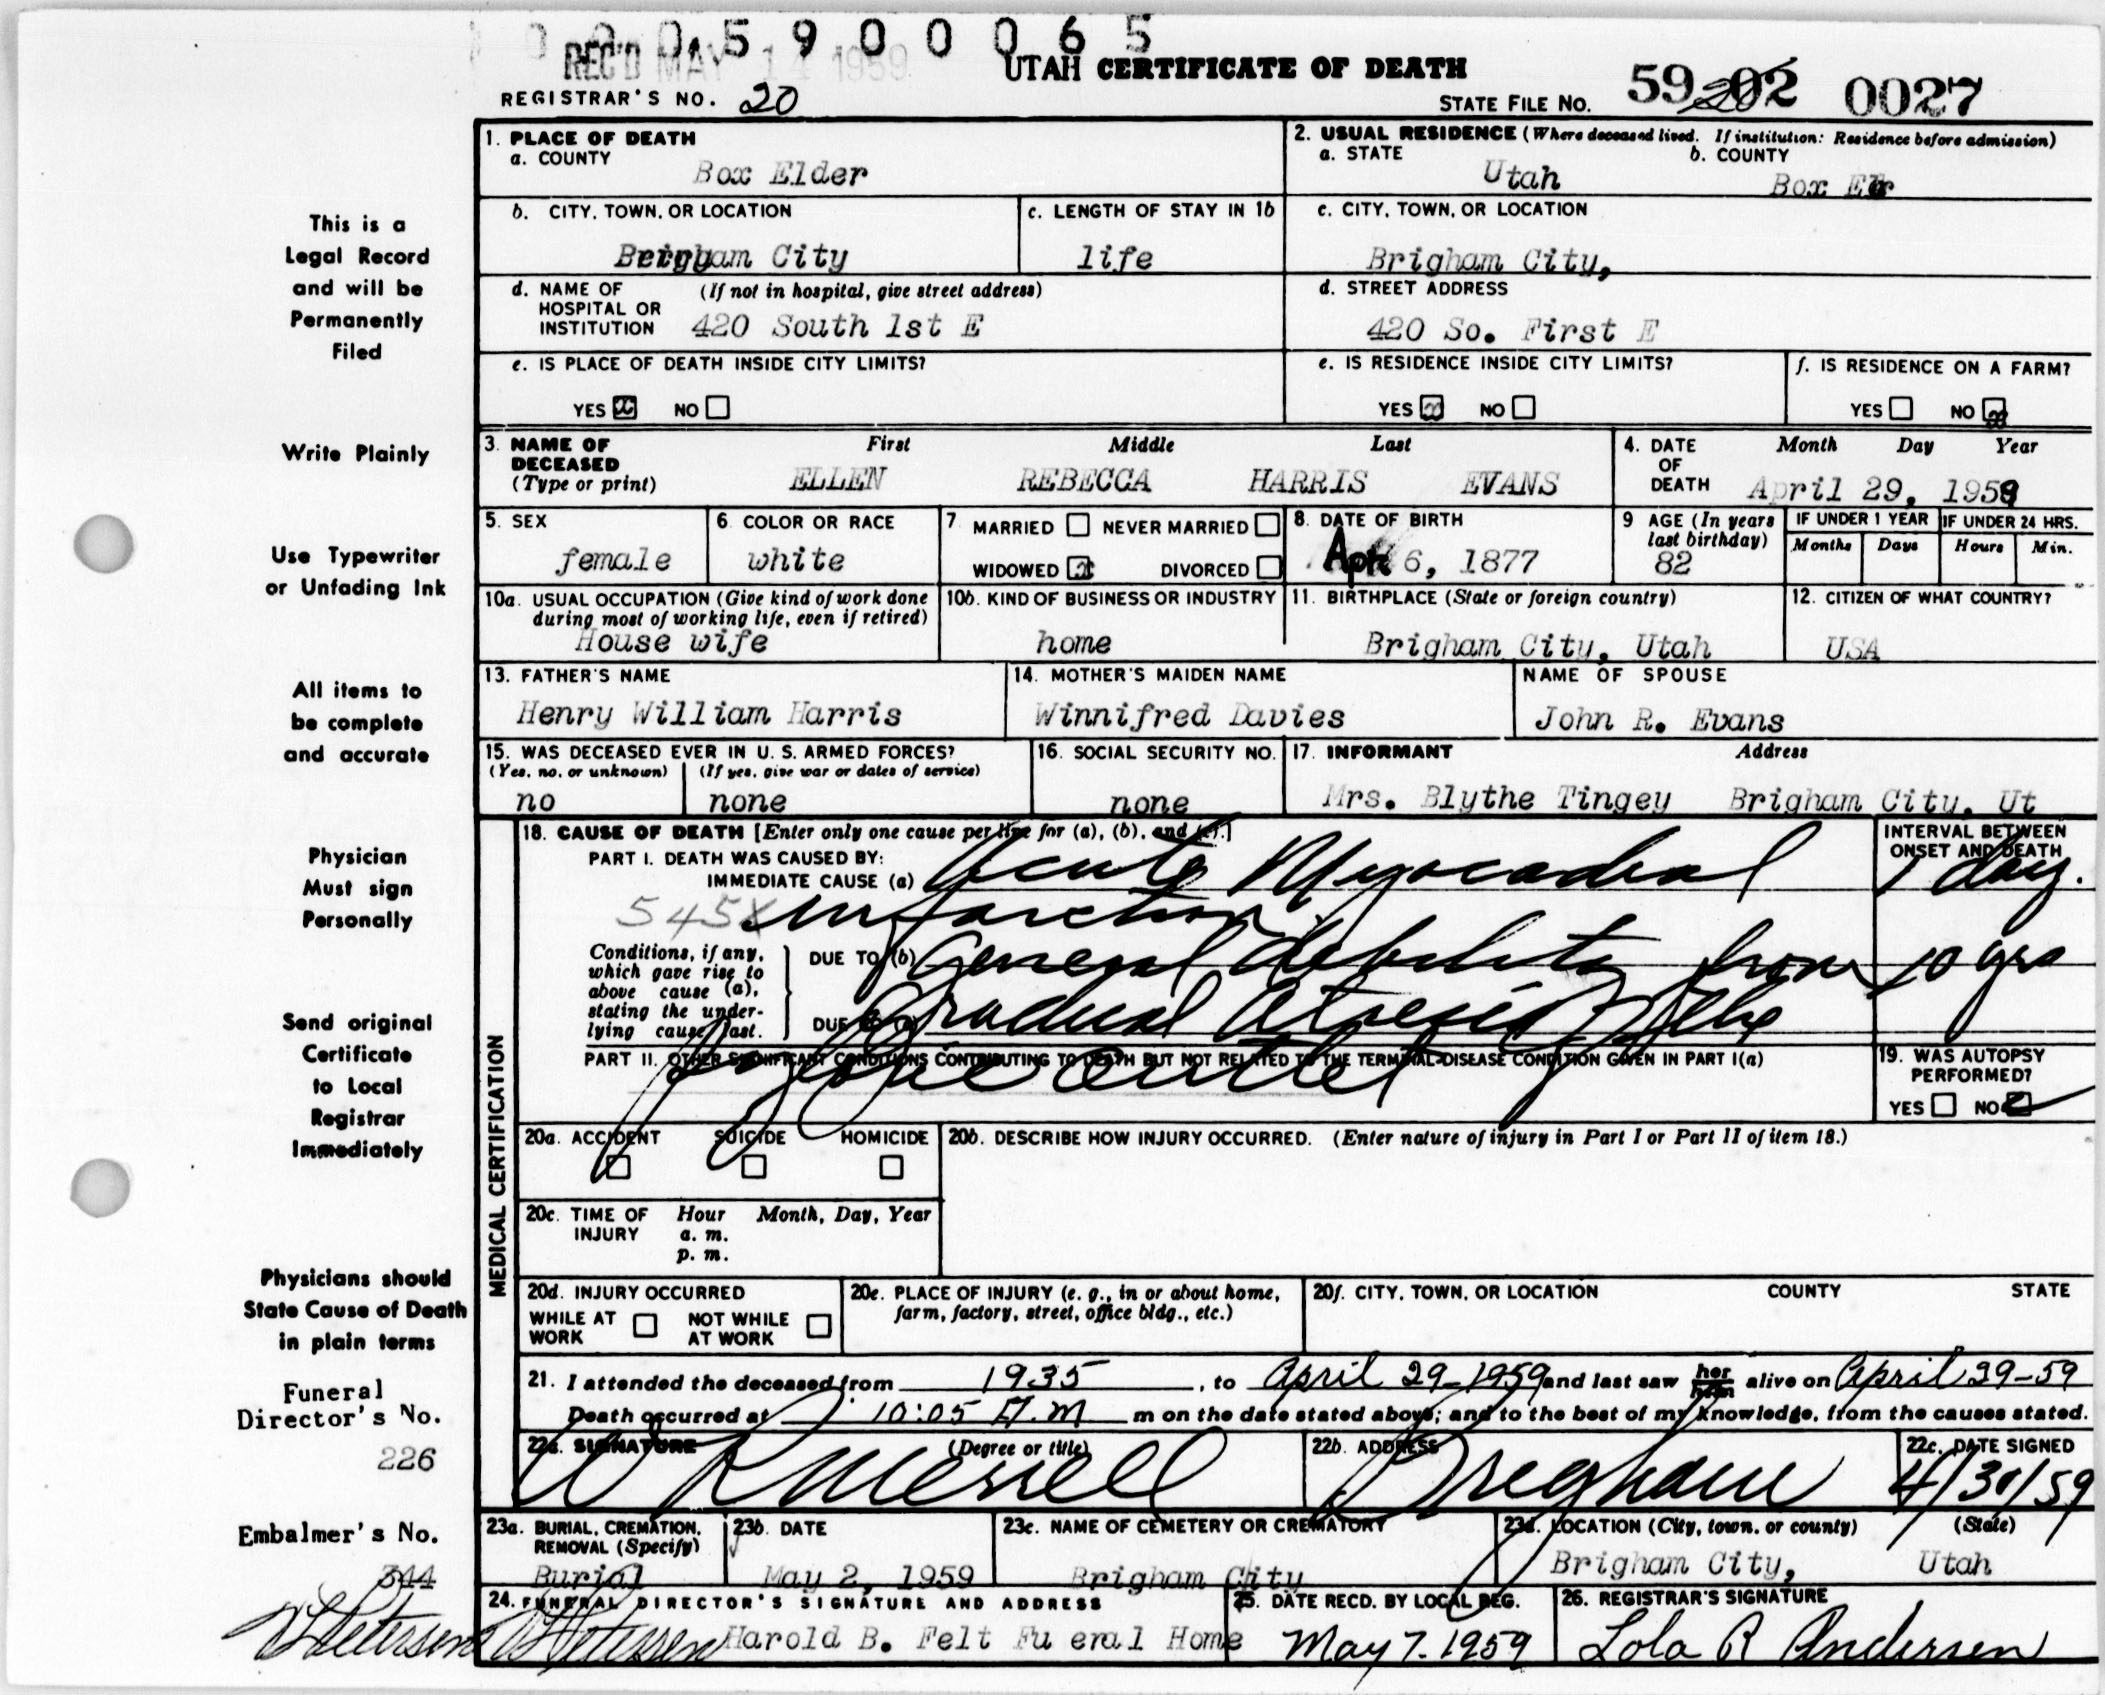 0 0 0 5 9 0 0 0 6 5
REC'D MAY 14 1959
UTAH CERTIFICATE OF DEATH
REGISTRAR'S NO. 20
STATE FILE NO. 59 02 0027
1. PLACE OF DEATH
a. COUNTY
Box Elder
2. USUAL RESIDENCE (Where deceased lived. If institution: Residence before admission)
a. STATE b. COUNTY
Utah Box
b. CITY, TOWN, OR LOCATION
Brigham City
c. LENGTH OF STAY IN 1b
life
c. CITY, TOWN, OR LOCATION
Brigham City,
d. NAME OF HOSPITAL OR INSTITUTION (If not in hospital, give street address)
420 South 1st E
d. STREET ADDRESS
420 So. First E
e. IS PLACE OF DEATH INSIDE CITY LIMITS?
YES x NO
e. IS RESIDENCE INSIDE CITY LIMITS?
YES x NO
f. IS RESIDENCE ON A FARM?
YES NO x
3. NAME OF DECEASED (Type or print)
First Middle Last
ELLEN REBECCA HARRIS EVANS
4. DATE OF DEATH
Month Day Year
April 29, 1959
5. SEX
female
6. COLOR OR RACE
white
7. MARRIED NEVER MARRIED
WIDOWED x DIVORCED
8. DATE OF BIRTH
Apr 6, 1877
9 AGE (In years last birthday)
82
IF UNDER 1 YEAR
Months Days
IF UNDER 24 HRS.
Hours Min.
10a. USUAL OCCUPATION (Give kind of work done during most of working life, even if retired)
House wife
10b. KIND OF BUSINESS OR INDUSTRY
home
11. BIRTHPLACE (State or foreign country)
Brigham City, Utah
12. CITIZEN OF WHAT COUNTRY?
USA
13. FATHER'S NAME
Henry William Harris
14. MOTHER'S MAIDEN NAME
Winnifred Davies
NAME OF SPOUSE
John R. Evans
15. WAS DECEASED EVER IN U. S. ARMED FORCES?
(Yes, no, or unknown) (If yes, give war or dates of service)
no none
16. SOCIAL SECURITY NO.
none
17. INFORMANT Address
Mrs. Blythe Tingey Brigham City, Ut
MEDICAL CERTIFICATION
18. CAUSE OF DEATH [Enter only one cause per line for (a), (b), and (c).]
PART I. DEATH WAS CAUSED BY:
IMMEDIATE CAUSE (a) Acute Myocadial
545X infarction
INTERVAL BETWEEN ONSET AND DEATH
1 day.
Conditions, if any, which gave rise to above cause (a), stating the underlying cause last.
DUE TO (b) General debility from 10 yrs
DUE TO (c) Gradual Atresia of the
PART II. OTHER SIGNIFICANT CONDITIONS CONTRIBUTING TO DEATH BUT NOT RELATED TO THE TERMINAL DISEASE CONDITION GIVEN IN PART I(a)
pyloric outlet
19. WAS AUTOPSY PERFORMED?
YES NO
20a. ACCIDENT SUICIDE HOMICIDE
20b. DESCRIBE HOW INJURY OCCURRED. (Enter nature of injury in Part I or Part II of item 18.)
20c. TIME OF INJURY
Hour Month, Day, Year
a. m.
p. m.
20d. INJURY OCCURRED
WHILE AT WORK NOT WHILE AT WORK
20e. PLACE OF INJURY (e. g., in or about home, farm, factory, street, office bldg., etc.)
20f. CITY, TOWN, OR LOCATION COUNTY STATE
21. I attended the deceased from 1935, to April 29-1959 and last saw her him alive on April 29-59
Death occurred at 10:05 A.M m on the date stated above; and to the best of my knowledge, from the causes stated.
22a. SIGNATURE (Degree or title)
W R Merrell
22b. ADDRESS
Brigham
22c. DATE SIGNED
4/30/59
23a. BURIAL, CREMATION, REMOVAL (Specify)
Burial
23b. DATE
May 2, 1959
23c. NAME OF CEMETERY OR CREMATORY
Brigham City
23d. LOCATION (City, town, or county) (State)
Brigham City, Utah
24. FUNERAL DIRECTOR'S SIGNATURE AND ADDRESS
Harold B. Felt Fu eral Home
25. DATE RECD. BY LOCAL REG.
May 7. 1959
26. REGISTRAR'S SIGNATURE
Lola R Andersen
This is a
Legal Record
and will be
Permanently
Filed
Write Plainly
Use Typewriter
or Unfading Ink
All items to
be complete
and accurate
Physician
Must sign
Personally
Send original
Certificate
to Local
Registrar
Immediately
Physicians should
State Cause of Death
in plain terms
Funeral
Director's No.
226
Embalmer's No.
344